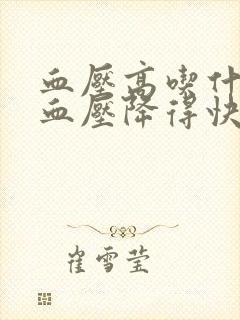 血壓高喫什
血壓降得快
崔雪莹